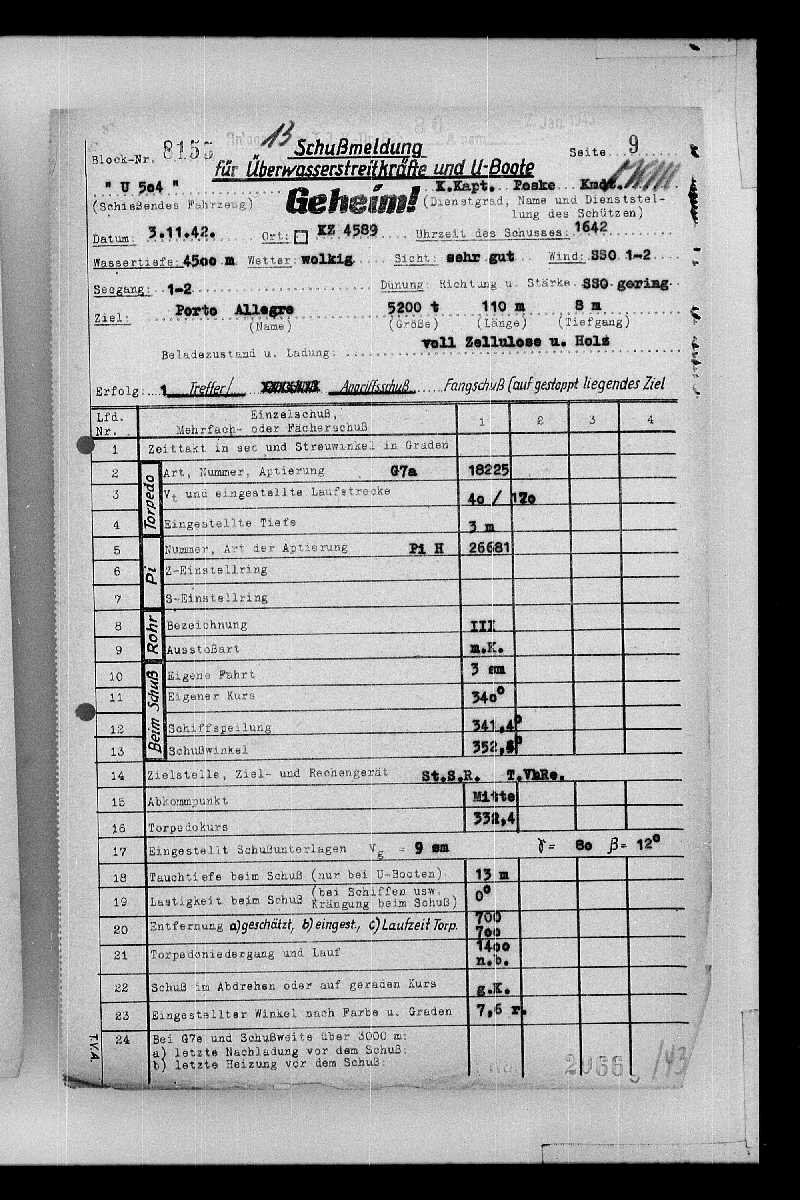 13
Block-Nr. 8155 Schußmeldung Seite 9
für Überwasserstreitkräfte und U-Boote
" U 504 " Geheim! K.Kapt. Poske Kmdt.
(Schießendes Fahrzeug) (Dienstgrad, Name und Dienststel-
lung des Schützen)
Datum: 3.11.42. Ort: KZ 4589 Uhrzeit des Schusses: 1642
Wassertiefe: 4500 m Wetter: wolkig Sicht: sehr gut Wind: SSO 1-2
Seegang: 1-2 Dünung: Richtung u. Stärke SSO gering
Ziel: Porto Allegre 5200 t 110 m 8 m
(Name) (Größe) (Länge) (Tiefgang)
voll Zellulose u. Holz
Beladezustand u. Ladung:
Erfolg: 1 Treffer/ Angriffsschuß Fangschuß (auf gestoppt liegendes Ziel
Lfd. Nr. Einzelschuß, Mehrfach- oder Fächerschuß 1 2 3 4
1 Zeittakt in sec und Streuwinkel in Graden
Torpedo
2 Art, Nummer, Aptierung G7a 18225
3 Vt und eingestellte Laufstrecke 40 / 120
4 Eingestellte Tiefe 3 m
Pi
5 Nummer, Art der Aptierung Pi H 26681
6 Z-Einstellring
7 S-Einstellring
Rohr
8 Bezeichnung III
9 Ausstoßart m.K.
Beim Schuß
10 Eigene Fahrt 3 sm
11 Eigener Kurs 340°
12 Schiffspeilung 341,4°
13 Schußwinkel 352,°
14 Zielstelle, Ziel- und Rechengerät St.S.R. T.VhRe.
15 Abkommpunkt Mitte
16 Torpedokurs 332,4
17 Eingestellt Schußunterlagen Vg = 9 sm γ= 80 β= 12°
18 Tauchtiefe beim Schuß (nur bei U-Booten) 13 m
19 Lastigkeit beim Schuß (bei Schiffen usw. Krängung beim Schuß) 0°
20 Entfernung a)geschätzt, b)eingest., c)Laufzeit Torp. 700 700
21 Torpedoniedergang und Lauf 1400 n.b.
22 Schuß im Abdrehen oder auf geraden Kurs g.K.
23 Eingestellter Winkel nach Farbe u. Graden 7,6 r.
24 Bei G7e und Schußweite über 3000 m:
a) letzte Nachladung vor dem Schuß:
b) letzte Heizung vor dem Schuß:
T.V.A.
2066 /43